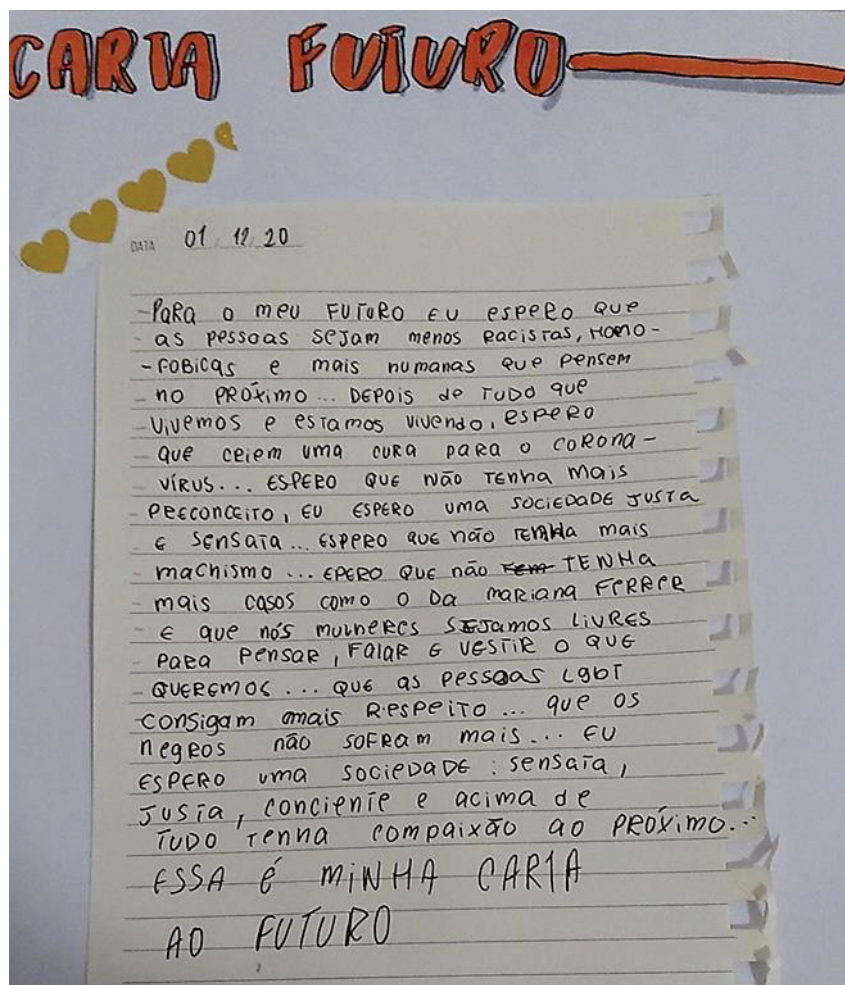 CARTA FUTURO
DATA 01 12 20
-PARA O meu FUTURO EU esPeRo QUe
- as pessoas sejam menos Racistas, HOMO-
- FOBICas e mais humanas que Pensem
- no PRÓximo... DEPOis de TUDO que
- ViVemos e estamos vivendo, esPERO
- que creiem uma CURA para o CORona-
- VÍRUS... ESPERO QUE NÃO TENha mais
PRECONCEITO, EU ESPERO uma SOCIEDADE JUSTA
E SENSATA... ESPERO QUE não TENHA mais
machismo... EPERO QUE não TENHA
- mais casos como O Da MaRiana FERRER
- E que nós mulheres SEJamos LIVRES
- PaRa PensaR, FalaR E VESTIR O QUE
- QUEREMOS... QUE as Pessoas LGBT
consigam mais RESPEITO... que os
negros não SOFRam mais... EU
ESPERO uma SOCIEDADE: sensata,
JUSTA, conciente e acima de
TUDO Tenha compaixão ao PRÓXimo...
ESSA É MINHA CARTA
AO FUTURO